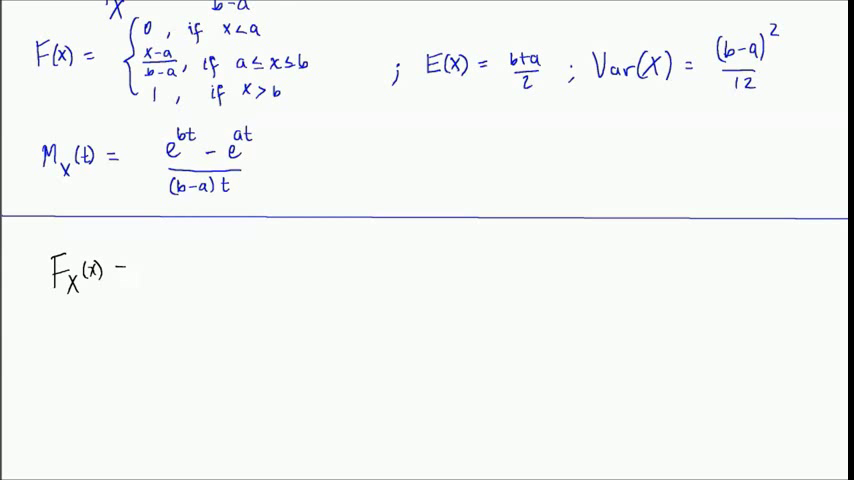 X b-a
F(x) = { 0 , if x<a
x-a/b-a , if a ≤ x ≤ b ; E(X) = b+a/2 ; Var(X) = (b-a)^2/12
1 , if x>b
M_X(t) = e^{bt} - e^{at}/(b-a)t
F_X(x) -